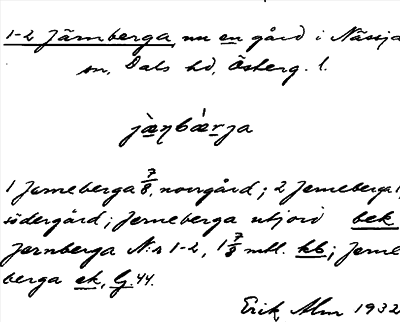 1-2 Järnberga, nu en gård i Nässja
sn, Dals hd, Österg. l.
jæ̀ŋbæ̀rja
1 Jerneberga 7/8, norrgård; 2 Jerneberga 1,
södergård; Jerneberga utjord bek
Jernberga N:s 1-2, 1 7/8 mtl. kb; Jerne
berga ek, Lg 44.
Erik Alm 1932